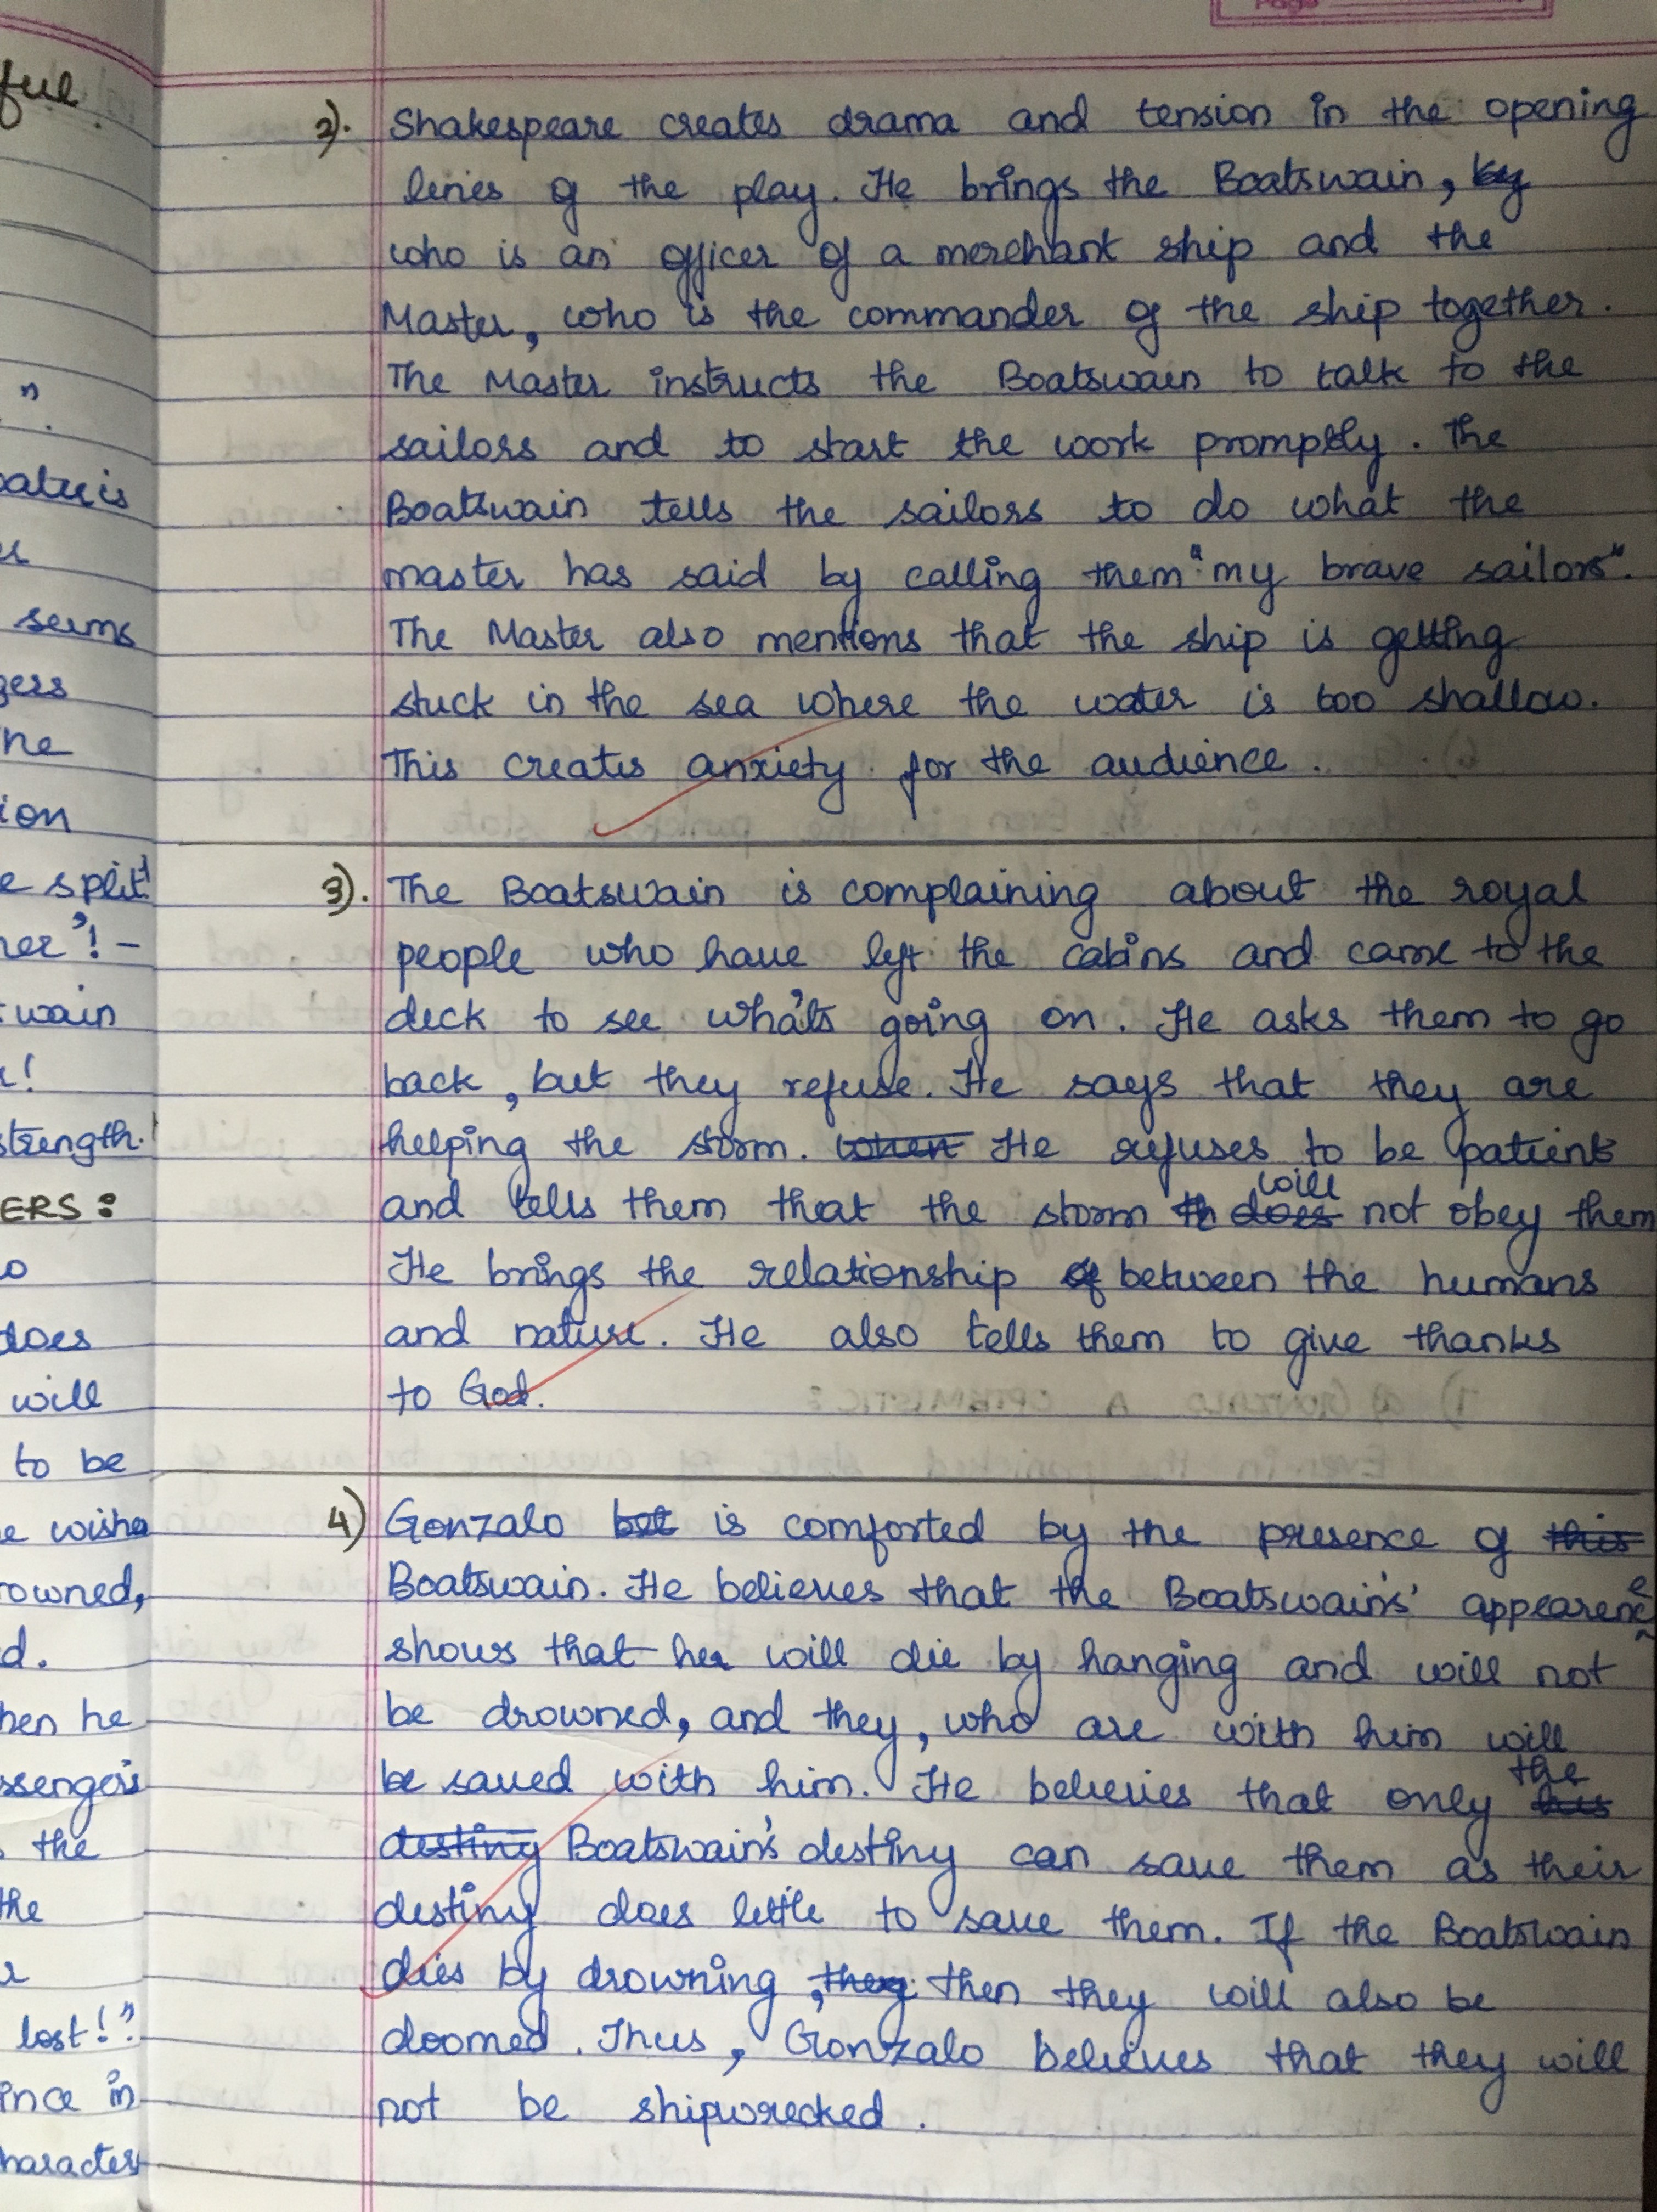 Page
ful
"
.
seems
gers
he
ion
e split!
her"! -
wain
!
strength!
ERS:
o
does
will
to be
e wishe
rowned,
d.
hen he
ssengers
the
the
lost!".
ince in
haracter
2). Shakespeare creates drama and tension in the opening
lines of the play. He brings the Boatswain, by
who is an officer of a merchant ship and the
Master, who is the commander of the ship together.
The Master instructs the Boatswain to talk to the
sailors and to start the work promptly. The
Boatswain tells the sailors to do what the
master has said by calling them "my brave sailors".
The Master also mentions that the ship is getting
stuck in the sea where the water is too shallow.
This creates anxiety for the audience.
3). The Boatswain is complaining about the royal
people who have left the cabins and came to the
deck to see what's going on. He asks them to go
back, but they refuse. He says that they are
helping the storm. when He refuses to be patient
and tells them that the storm th does will not obey them
He brings the relationship of between the humans
and nature. He also tells them to give thanks
to God.
4) Gonzalo bot is comforted by the presence of this
Boatswain. He believes that the Boatswain's' appearence
shows that he will die by hanging and will not
be drowned, and they, who are with him will
be saved with him. He believes that only his the
destiny Boatswain's destiny can save them as their
destiny does little to save them. If the Boatswain
dies by drowning, they then they will also be
doomed. Thus, Gonzalo believes that they will
not be shipwrecked.